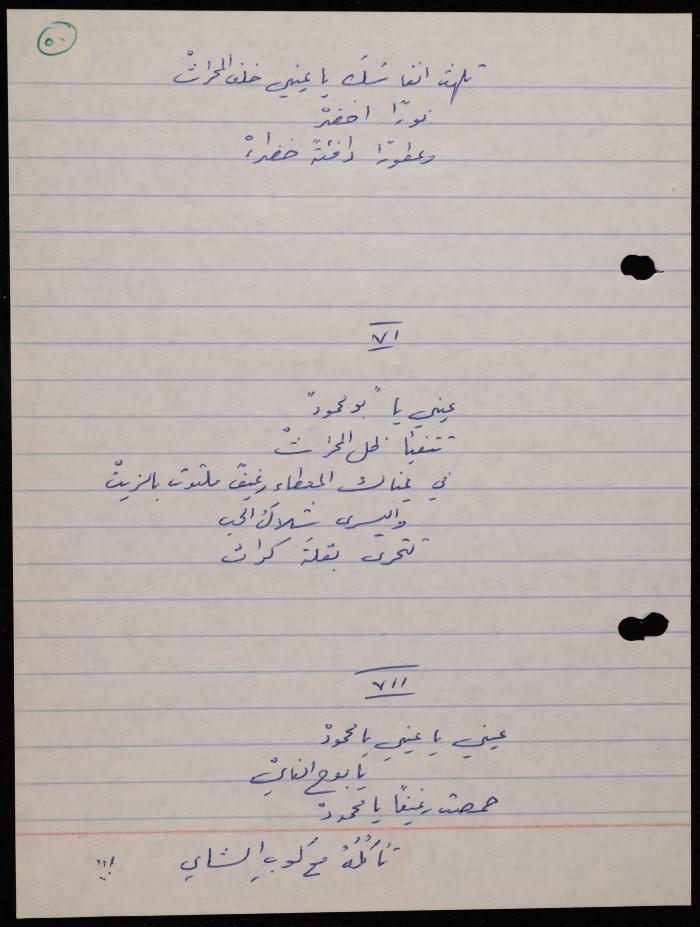 ٥٠
تلهث انفاسك يا عيني خلف المحراثْ
نورًا اخضرْ
وعطورًا دافئةً خضراءْ
VI
عيني يا "بو محمود"
تتفيأ ظل المحراثْ
في يمناك المعطاء رغيفٌ ملتوت بالزيتْ
واليسرى شلالُ الحب
تتحرى بقلةَ كراث
VII
عيني يا عيني يا محمودْ
يا بوح النايْ
حمصت رغيفًا يا محمودْ
تأكُلُهُ مع كوبِ الشاي !!!